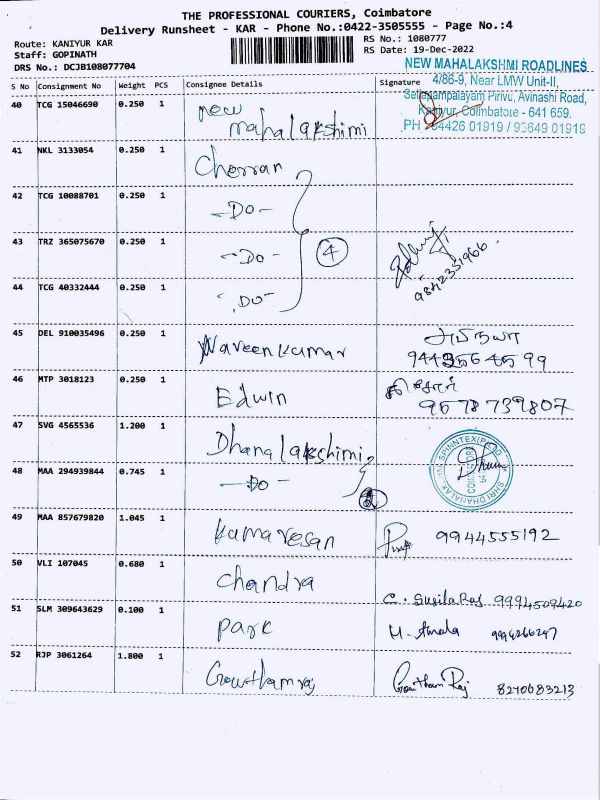 THE PROFESSIONAL COURIERS, Coimbatore
Delivery Runsheet - KAR - Phone No.:0422-3505555 - Page No.:4
Route: KANIYUR KAR
RS No.: 1080777
Staff: GOPINATH
RS Date: 19-Dec-2022
DRS No.: DCJB108077704
NEW MAHALAKSHMI ROADLINES
4/86-9, Near LMW Unit-II,
Pirivu, Avinashi Road,
Coimbatore - 641 659.
PH 26 01919 / 93649 01919
S No Consignment No Weight PCS Consignee Details Signature
40 TCG 15046690 0.250 1 new
maha lakshimi
41 NKL 3133054 0.250 1 Cherran
42 TCG 10088701 0.250 1 -DO-
43 TRZ 365075670 0.250 1 -DO- 4
9842351966
44 TCG 40332444 0.250 1 -DO-
45 DEL 910035496 0.250 1 Naveen kumar அபிநயா
46 MTP 3018123 0.250 1 Edwin கிஷோர்
9578739807
47 SVG 4565536 1.200 1 Dhana lakshimi
48 MAA 294939844 0.745 1 -DO-
49 MAA 857679820 1.045 1 kumaresan 9944555192
50 VLI 107045 0.680 1 chandra C. Susila Raj 9994509420
51 SLM 309643629 0.100 1 park M. Amala
52 RJP 3061264 1.800 1 Gowthamraj Gowtham Raj 8270683213